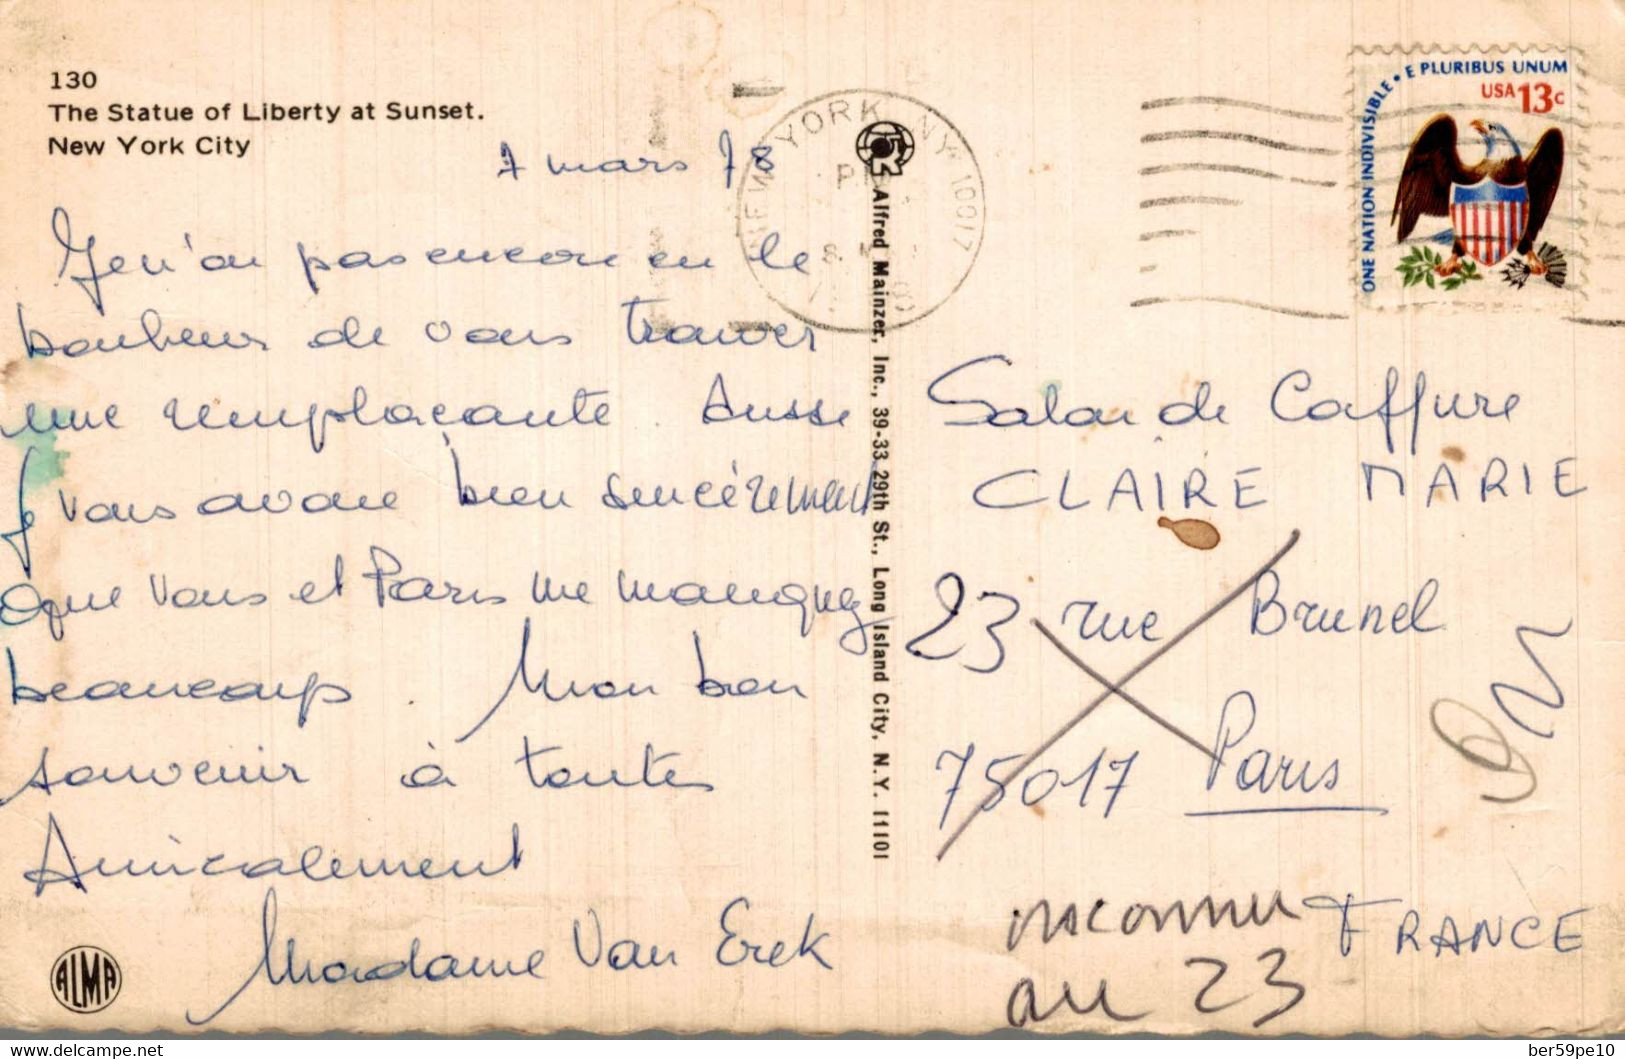 130
The Statue of Liberty at Sunset.
New York City
7 mars 78
Je n'ai pas encore eu le
bonheur de vous trouver
une remplaçante. Aussi
je vous avoue bien sincèrement
que vous et Paris me manquez
beaucoup. Mon bon
souvenir à toutes
Amicalement
Madame Van Erek
ALMA
Alfred Mainzer, Inc., 39-33 29th St., Long Island City, N.Y. 11101
NEW YORK, NY 10017
PM
ONE NATION INDIVISIBLE • E PLURIBUS UNUM
USA 13c
Salon de Coiffure
CLAIRE MARIE
23 rue Brunel
75017 Paris
FRANCE
inconnu
au 23
delcampe.net
ber59pe10